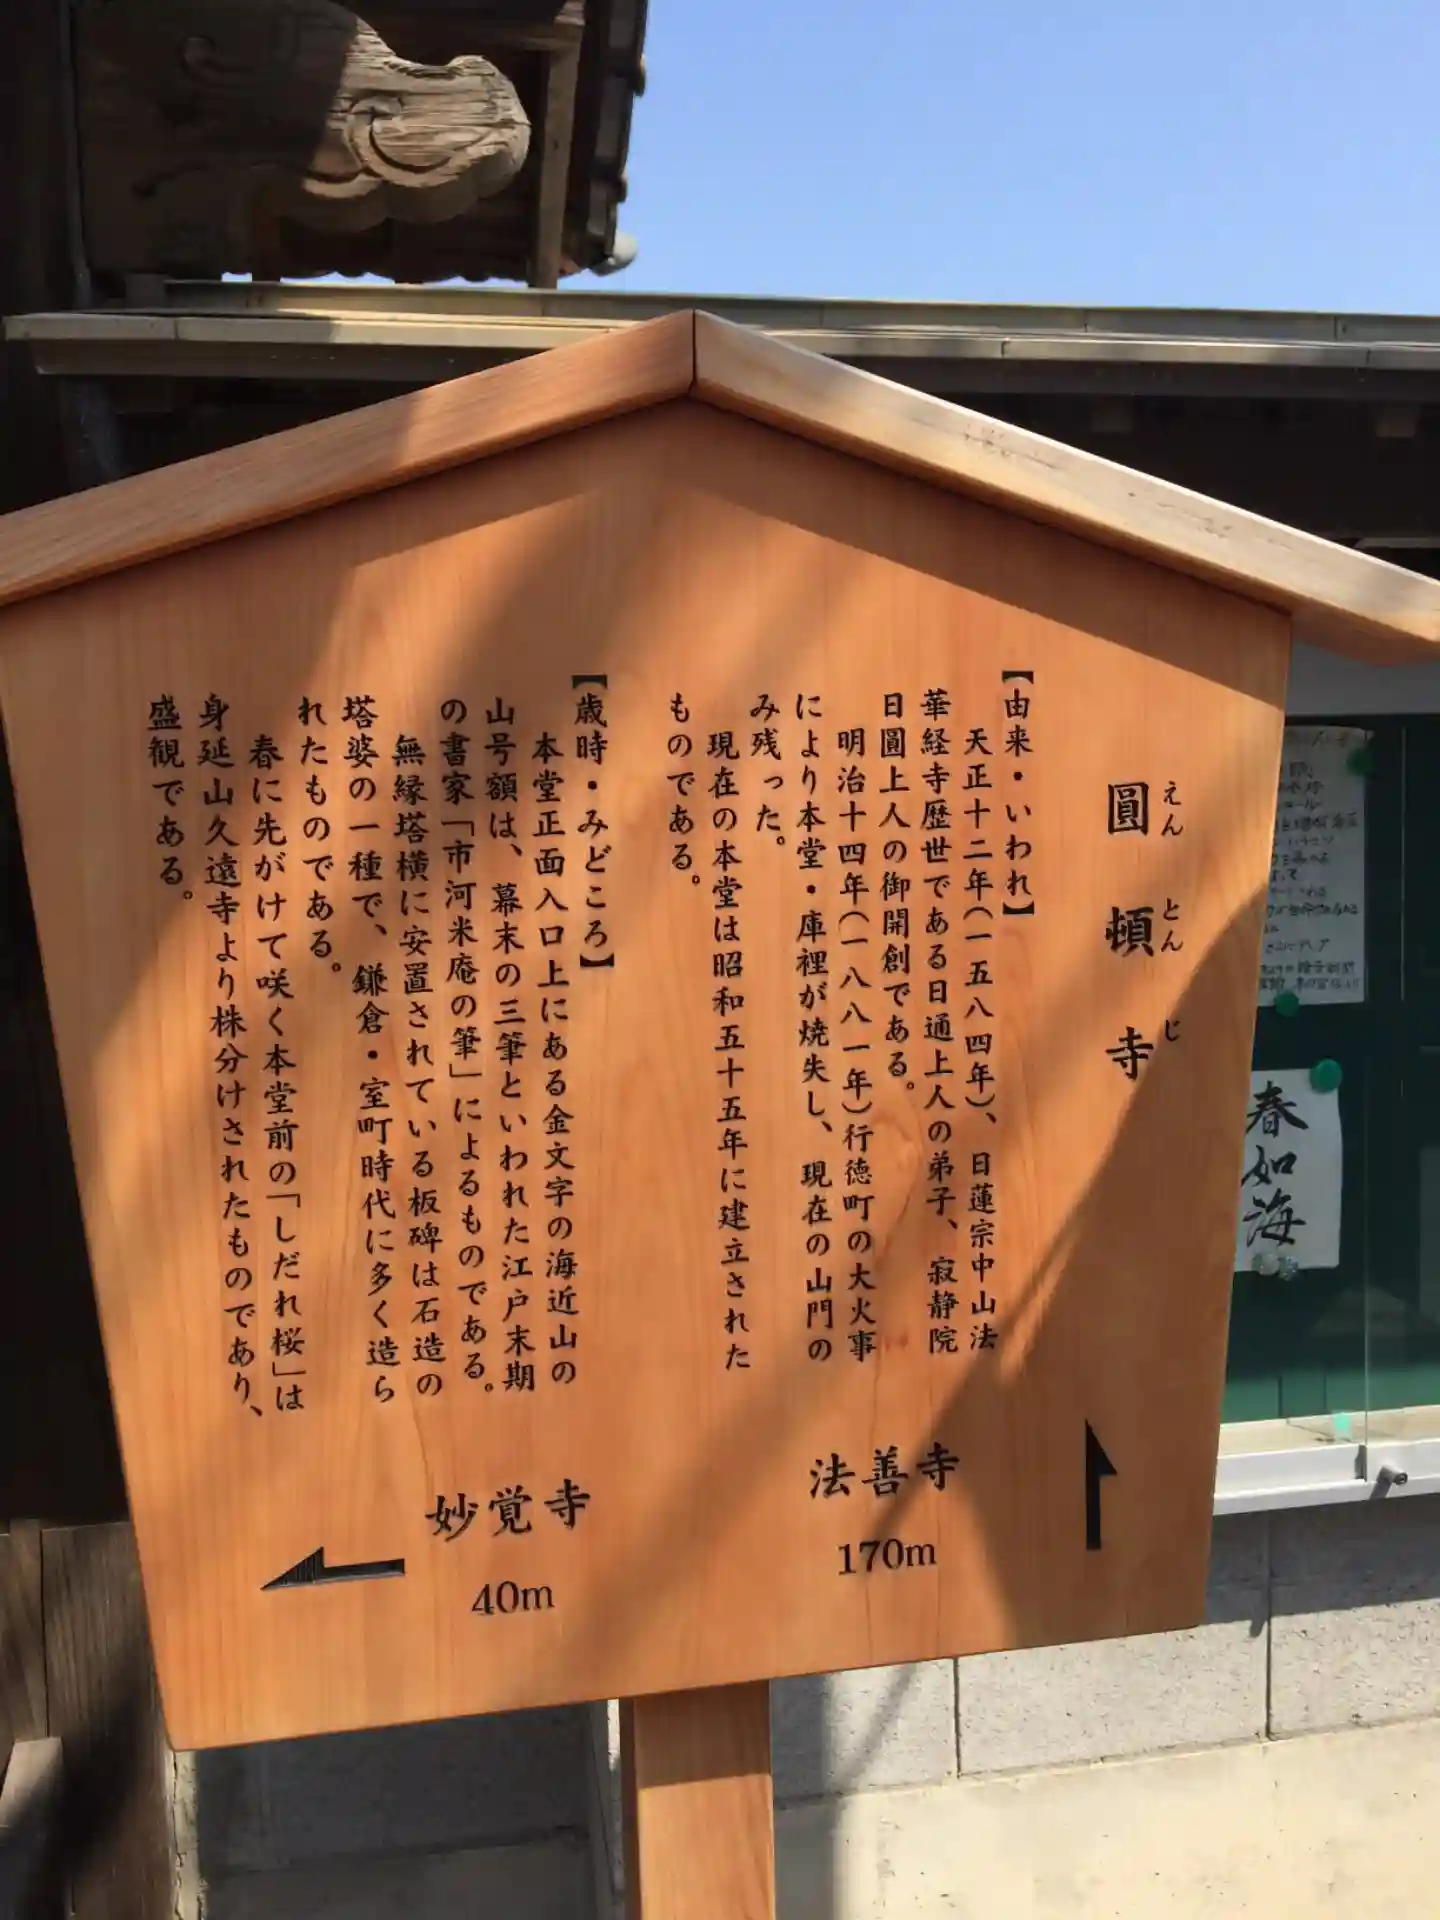 圓頓寺
えんとんじ
【由来・いわれ】
天正十二年(一五八四年)、日蓮宗中山法
華経寺歴世である日通上人の弟子、寂静院
日圓上人の御開創である。
明治十四年(一八八一年)行徳町の大火事
により本堂・庫裡が焼失し、現在の山門の
み残った。
現在の本堂は昭和五十五年に建立された
ものである。
【歳時・みどころ】
本堂正面入口上にある金文字の海近山の
山号額は、幕末の三筆といわれた江戸末期
の書家「市河米庵の筆」によるものである。
無縁塔横に安置されている板碑は石造の
塔婆の一種で、鎌倉・室町時代に多く造ら
れたものである。
春に先がけて咲く本堂前の「しだれ桜」は
身延山久遠寺より株分けされたものであり、
盛観である。
法善寺
170m
妙覚寺
40m
春如海